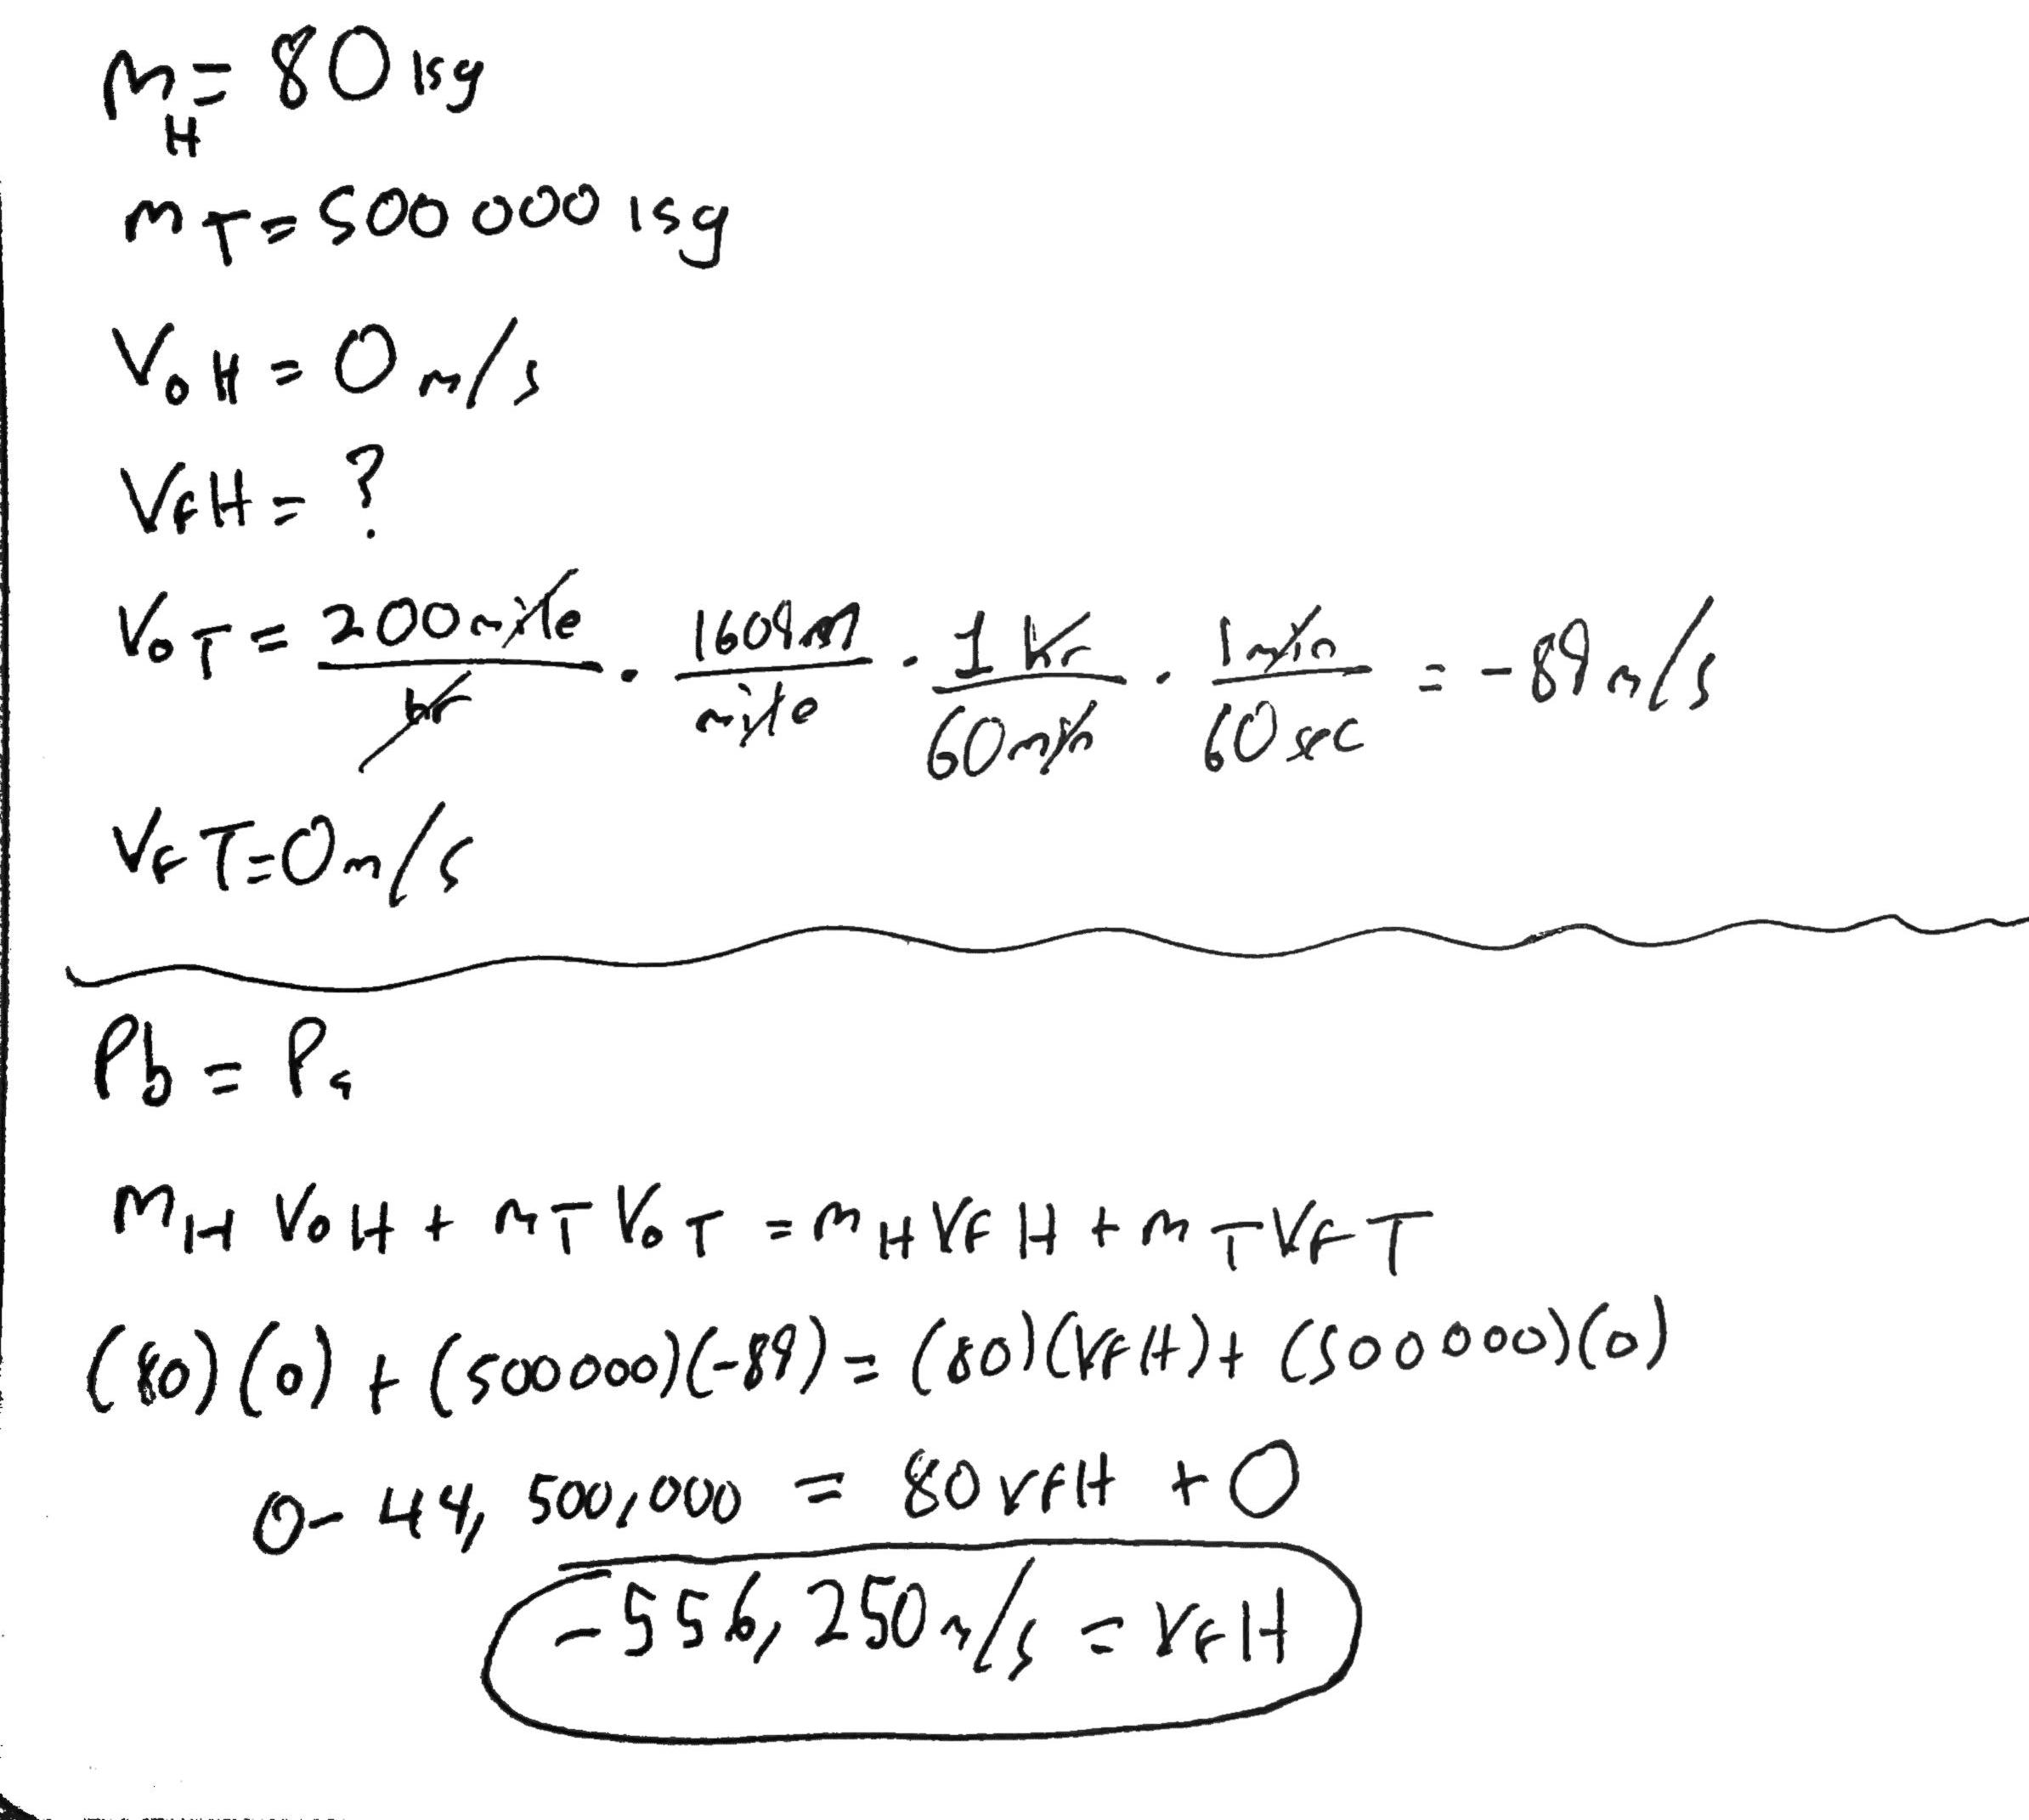 m_H = 80 kg
m_T = 500 000 kg
V_oH = 0 m/s
V_fH = ?
V_oT = 200 mile/hr · 1609 m/mile · 1 hr/60 min · 1 min/60 sec = -89 m/s
V_fT = 0 m/s
Pb = Pa
m_H V_oH + m_T V_oT = m_H V_fH + m_T V_fT
(80)(0) + (500000)(-89) = (80)(V_fH) + (500 000)(0)
0 - 44,500,000 = 80 V_fH + 0
-556,250 m/s = V_fH